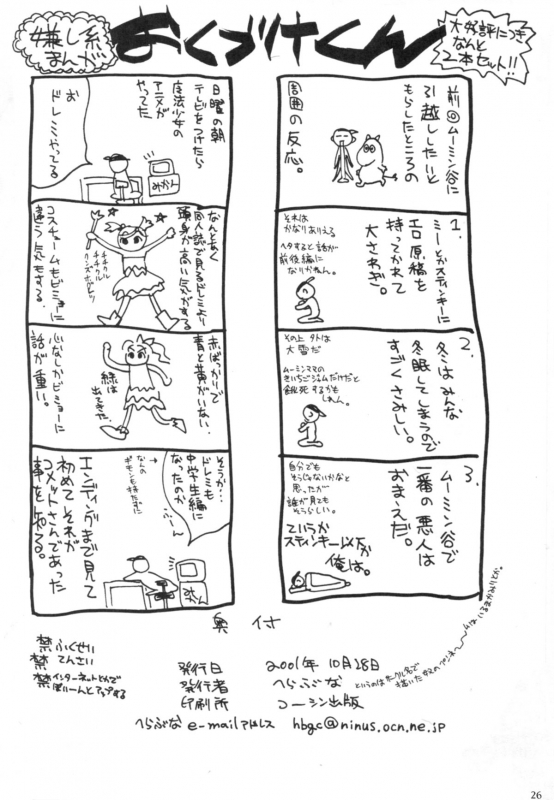 嫌し系
まんが
おくづけくん
大好評につき
なんと
2本セット!!
前回ムーミン谷に
引越ししたいと
もらしたところの
周囲の反応。
1.
ミーとかスティンキーに
エロ原稿を
持ってかれて
大さわぎ。
それは
かなりありえる
ヘタすると話が
前後編に
なりかねん。
2.
冬はみんな
冬眠してしまうので
すごくさみしい。
その上 外は
大雪だ
ムーミンママの
きいちごジャムだけだと
餓死するかも
しれん。
3.
ムーミン谷で
一番の悪人は
おまえだ。
自分でも
そうじゃないかなと
思ったが
誰が見ても
そうらしい。
ていうか
スティンキー以下か
俺は。
日曜の朝
テレビをつけたら
魔法少女の
アニメが
やってた
お
ドレミやってる
みかん
なんとなく
同人誌で見るドレミより
頭身が高い気がする
コスチュームもビミョーに
違う気もする。
赤ばかりで
青と黄がいない。
緑は
出てきた。
心なしかビミョーに
話が重い。
そうか…
ドレミも
中学生編に
なったのか
ふーん
なんの
ギモンも持たずに
エンディングまで見て
初めてそれが
コメットさんであった
事を知る。
みかん
奥付
禁ふくせい
禁てんさい
禁インターネットとかで
ばいーんとアップする
発行日 2001年10月28日
発行者 へらぶな
印刷所 コーシン出版
へらぶな e-mailアドレス hbgc@ninus.ocn.ne.jp
26